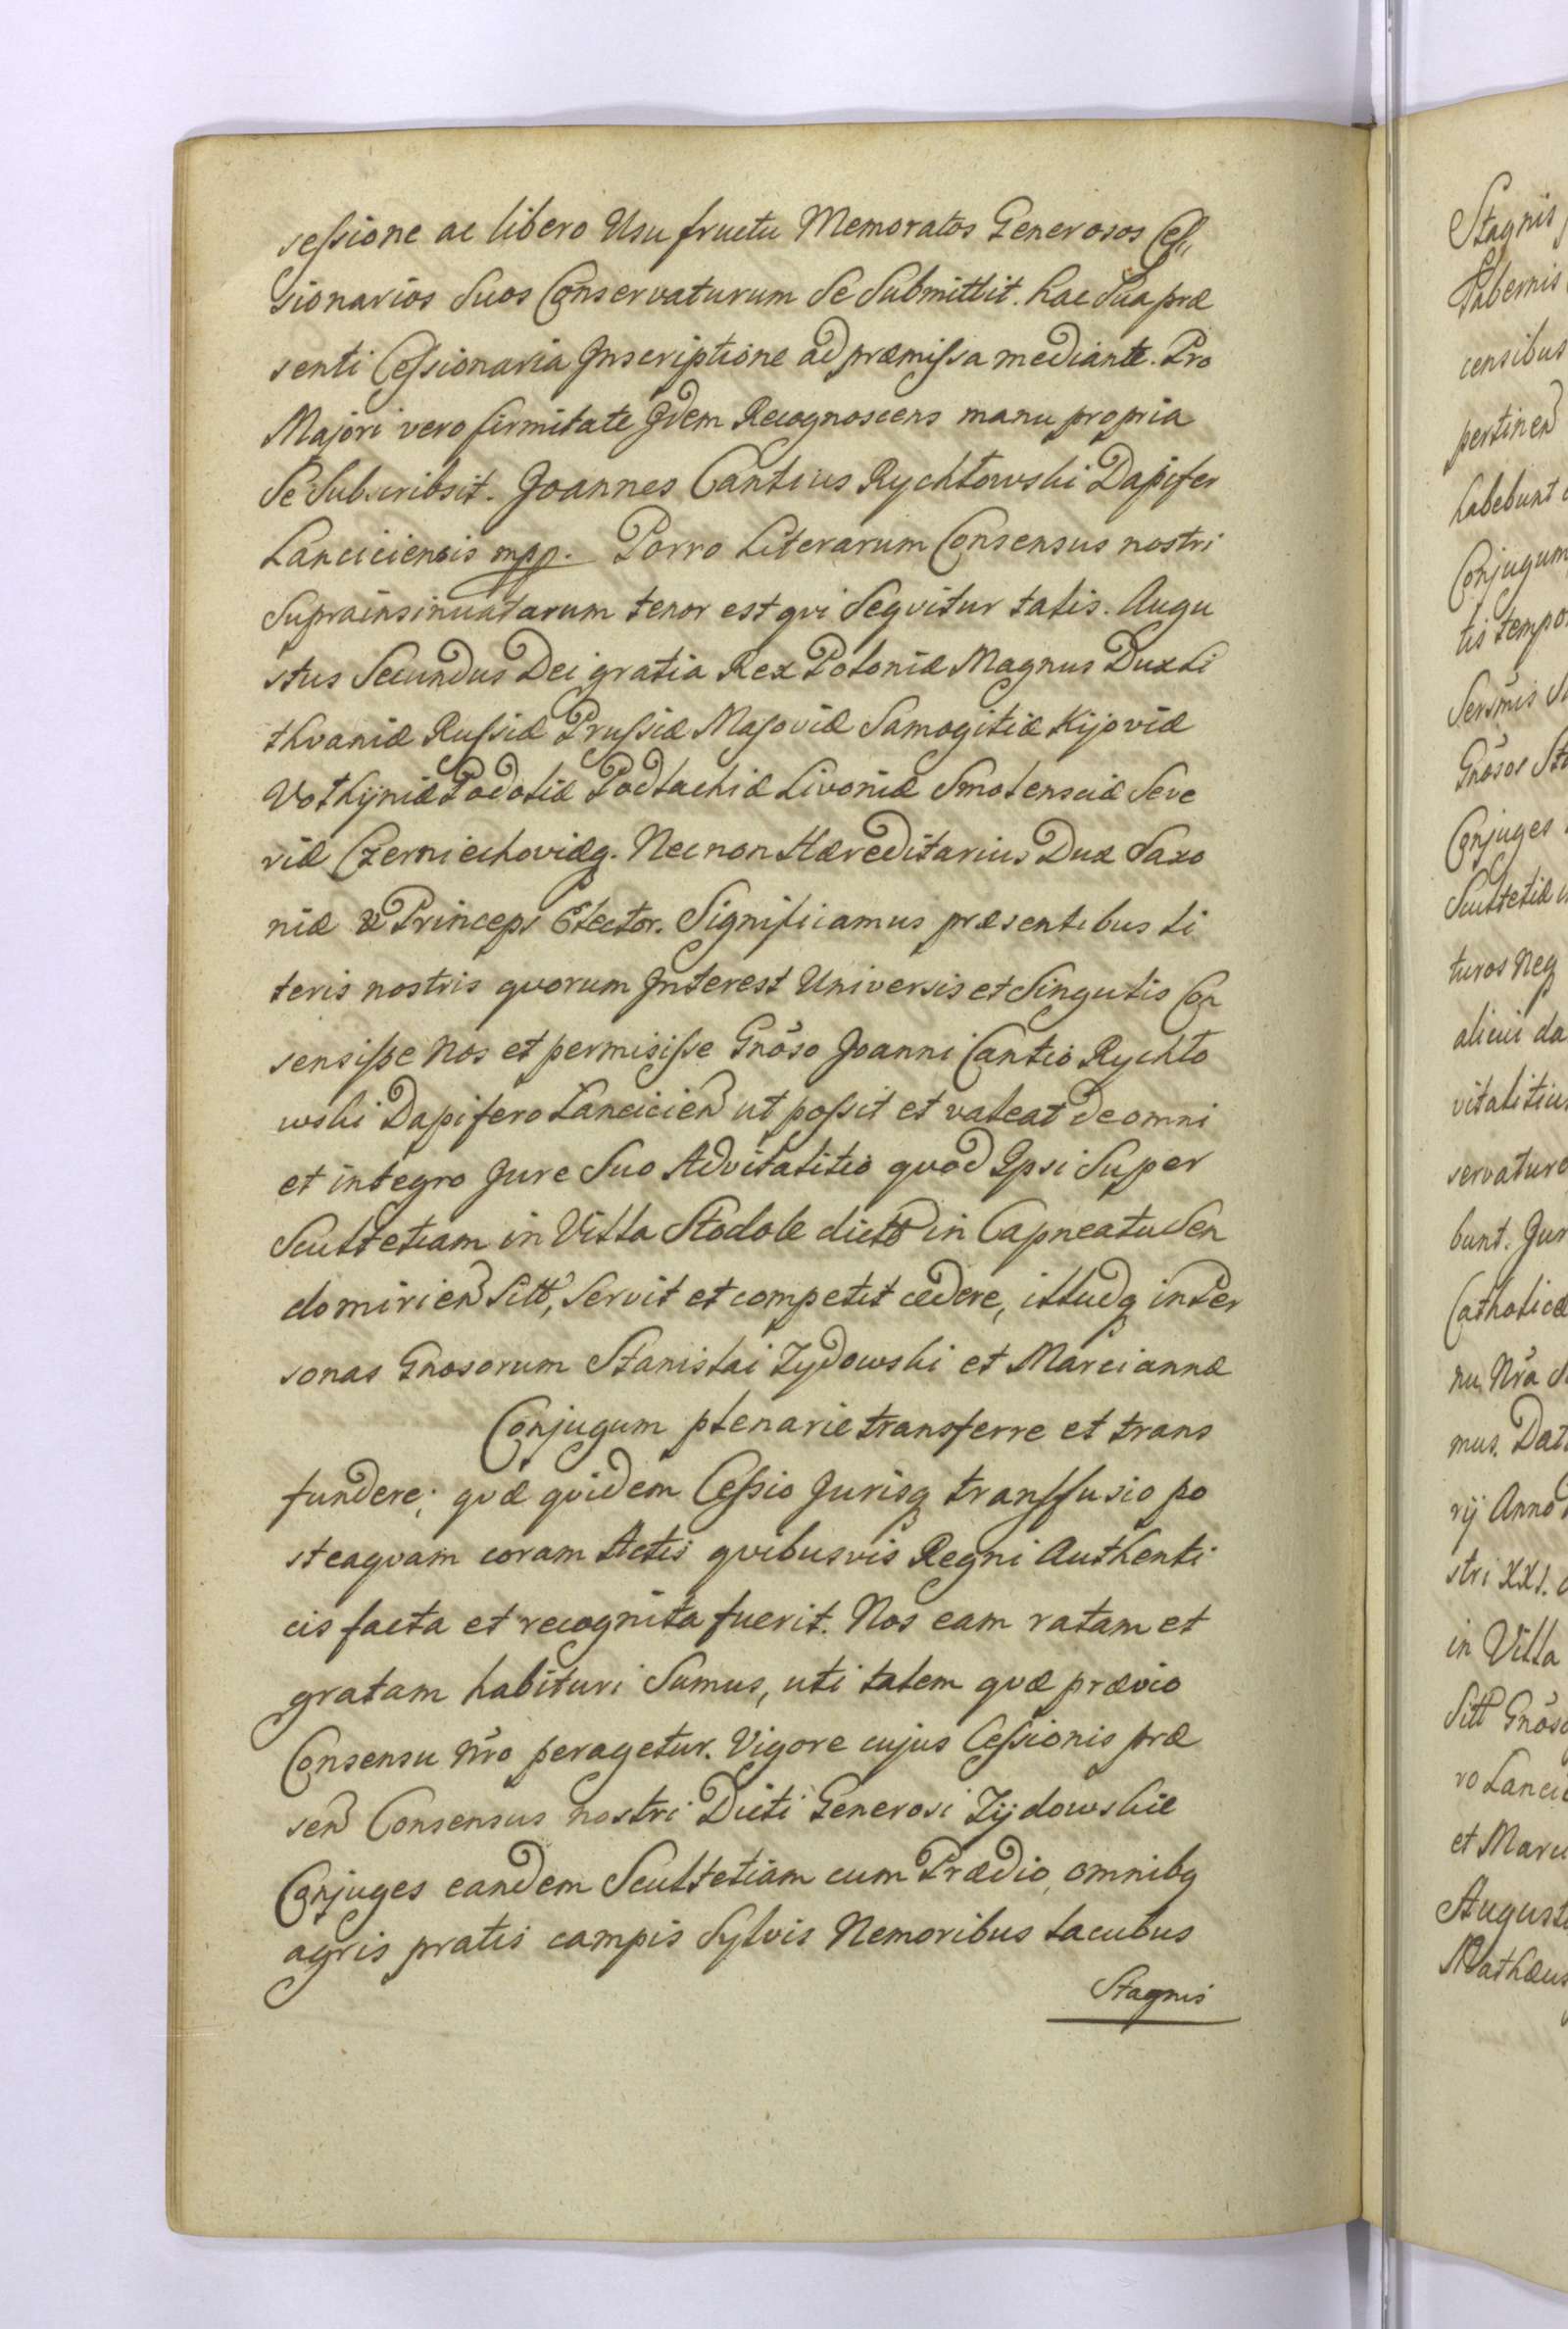 sessione ac libero Usu fructu Memoratos Generosos Ces„
sionarios Suos Conservaturum Se Submittit. hac Sua præ
senti Cessionaria Inscriptione ad præmissa mediante. Pro
Majori vero firmitate Idem Recognoscens manu propria
Se Subscribsit. Joannes Cantius Rychłowski Dapifer
Lanciciensis mpp. Porro Literarum Consensus nostri
Suprainsinuatarum tenor est qvi Seqvitur talis. Augu
stus Secundus Dei gratia Rex Poloniæ Magnus Dux Li
thvaniæ Russiæ Prussiæ Masoviæ Samogitiæ Kijoviæ
Volhyniæ Podoliæ Podlachiæ Livoniæ Smolensciæ Seve
riæ Czerniechoviæq. Necnon Hæreditarius Dux Saxo
niæ & Princeps Elector. Significamus præsentibus li
teris nostris qvorum Interest Universis et Singulis Con
sensisse Nos et permisisse Gnōso Joanni Cantio Rychło
wski Dapifero Lancicien ut possit et valeat de omni
et integro Jure Suo Advitalitio qvod Ipsi Super
Scultetiam in Villa Stodole dictt in Capneatu Sen
domirien Sitt, Servit et competit cædere, illudq in Per
sonas Gnosorum Stanislai Zydowski et Mareiannæ
Conjugum plenarie transferre et trans
fundere; qvæ qvidem Cessio Jurisq transfusio po
steaqvam coram Actis qvibusvis Regni Authenti
cis facta et recognita fuerit. Nos eam ratam et
gratam habituri Sumus, uti talem qvæ prævio
Consensu nr̄o peragetur. Vigore cujus Cessionis præ
sen Consensus nostri Dicti Generosi Zydowskie
Conjuges eandem Scultetiam cum Prædio, omnibq
agris pratis campis Sylvis Nemoribus lacubus
Stagnis
Stagnis
Tabernis
censibus
pertinen
habebunt
Conjugum
tis tempo
Sersmis
Gnōsos
Conjuges
Scultetiæ
turos Neq
alicui da
vitalitiu
servaturo
bunt. Jur
Catholicæ
nu Nr̄a
mus. Dat
rij Anno
stri XXI.
in Villa
Sitt Gnōso
ro Lanci
et Marci
August
Mathæus